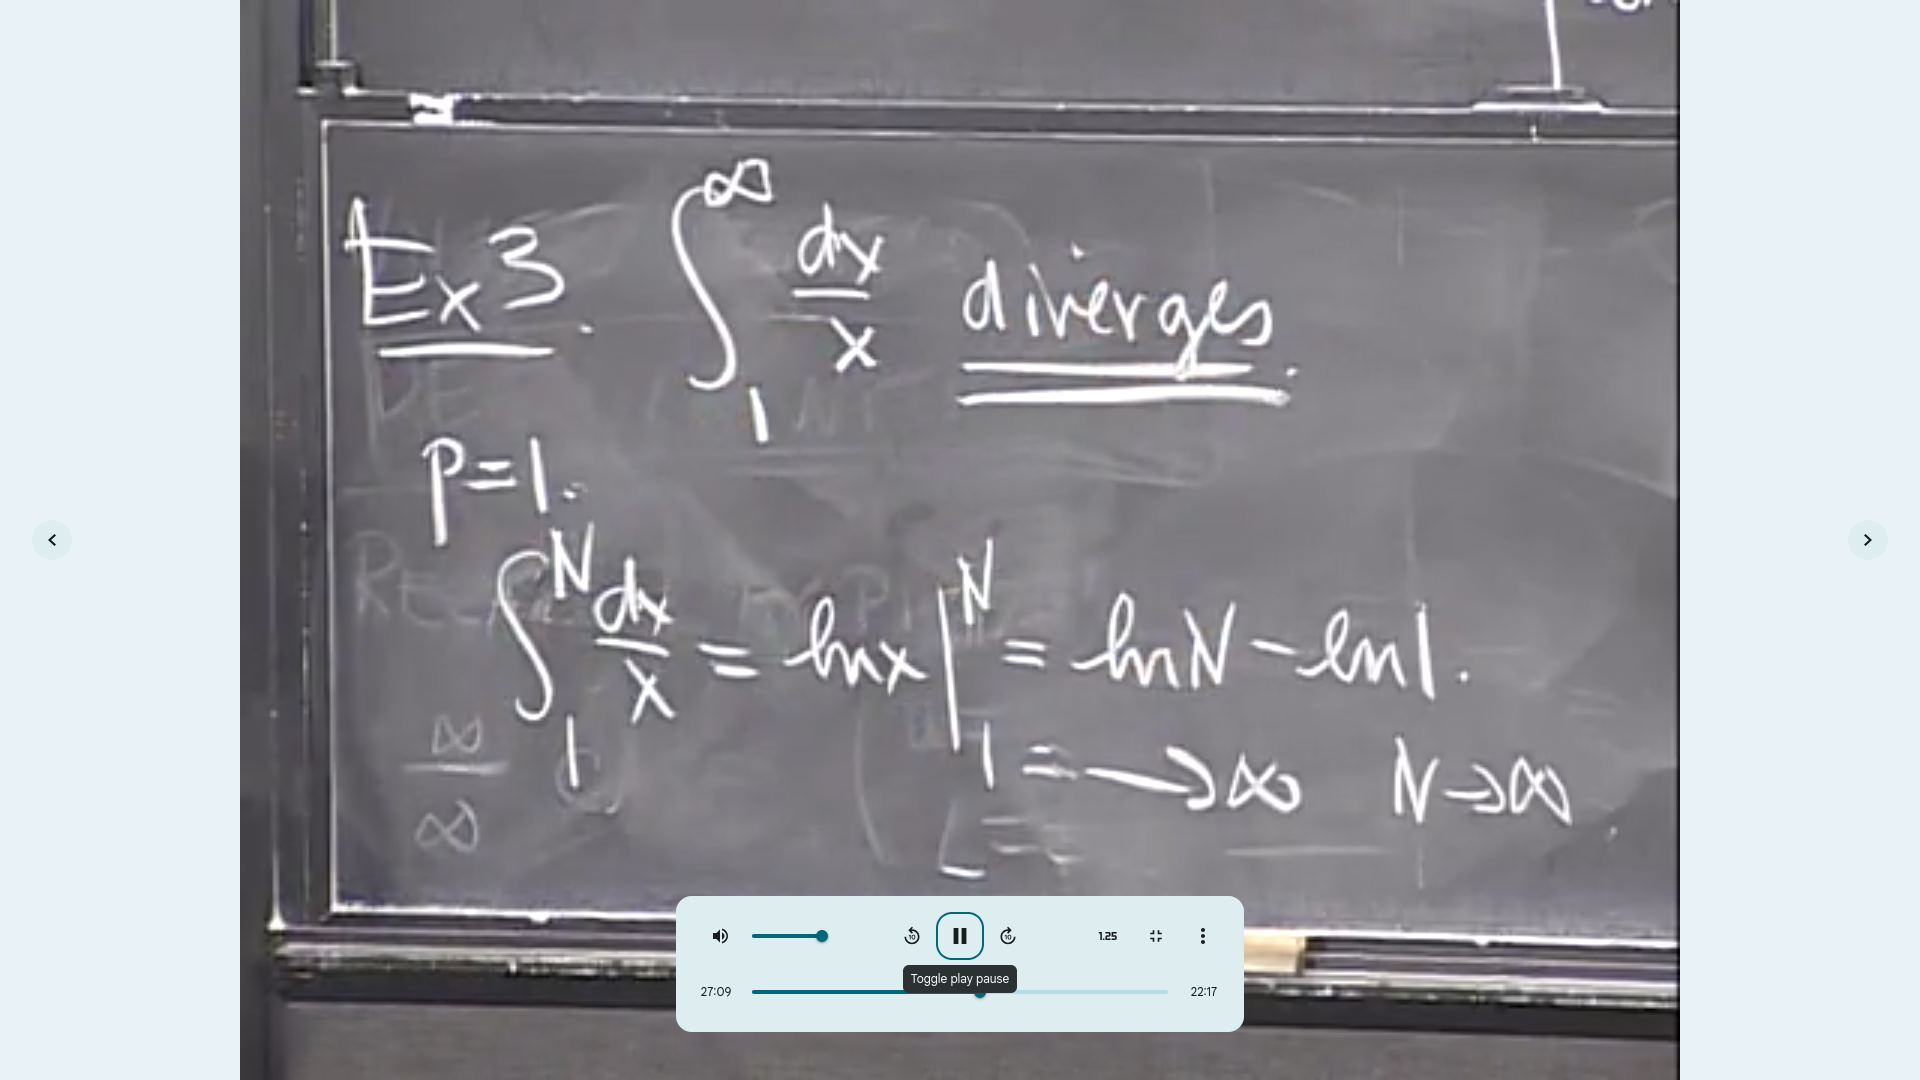 Ex 3. ∫₁^∞ dx/x diverges.
P=1.
∫₁^N dx/x = ln x |₁^N = ln N - ln 1.
= → ∞ N → ∞
∞/∞
1.25
Toggle play pause
27:09
22:17